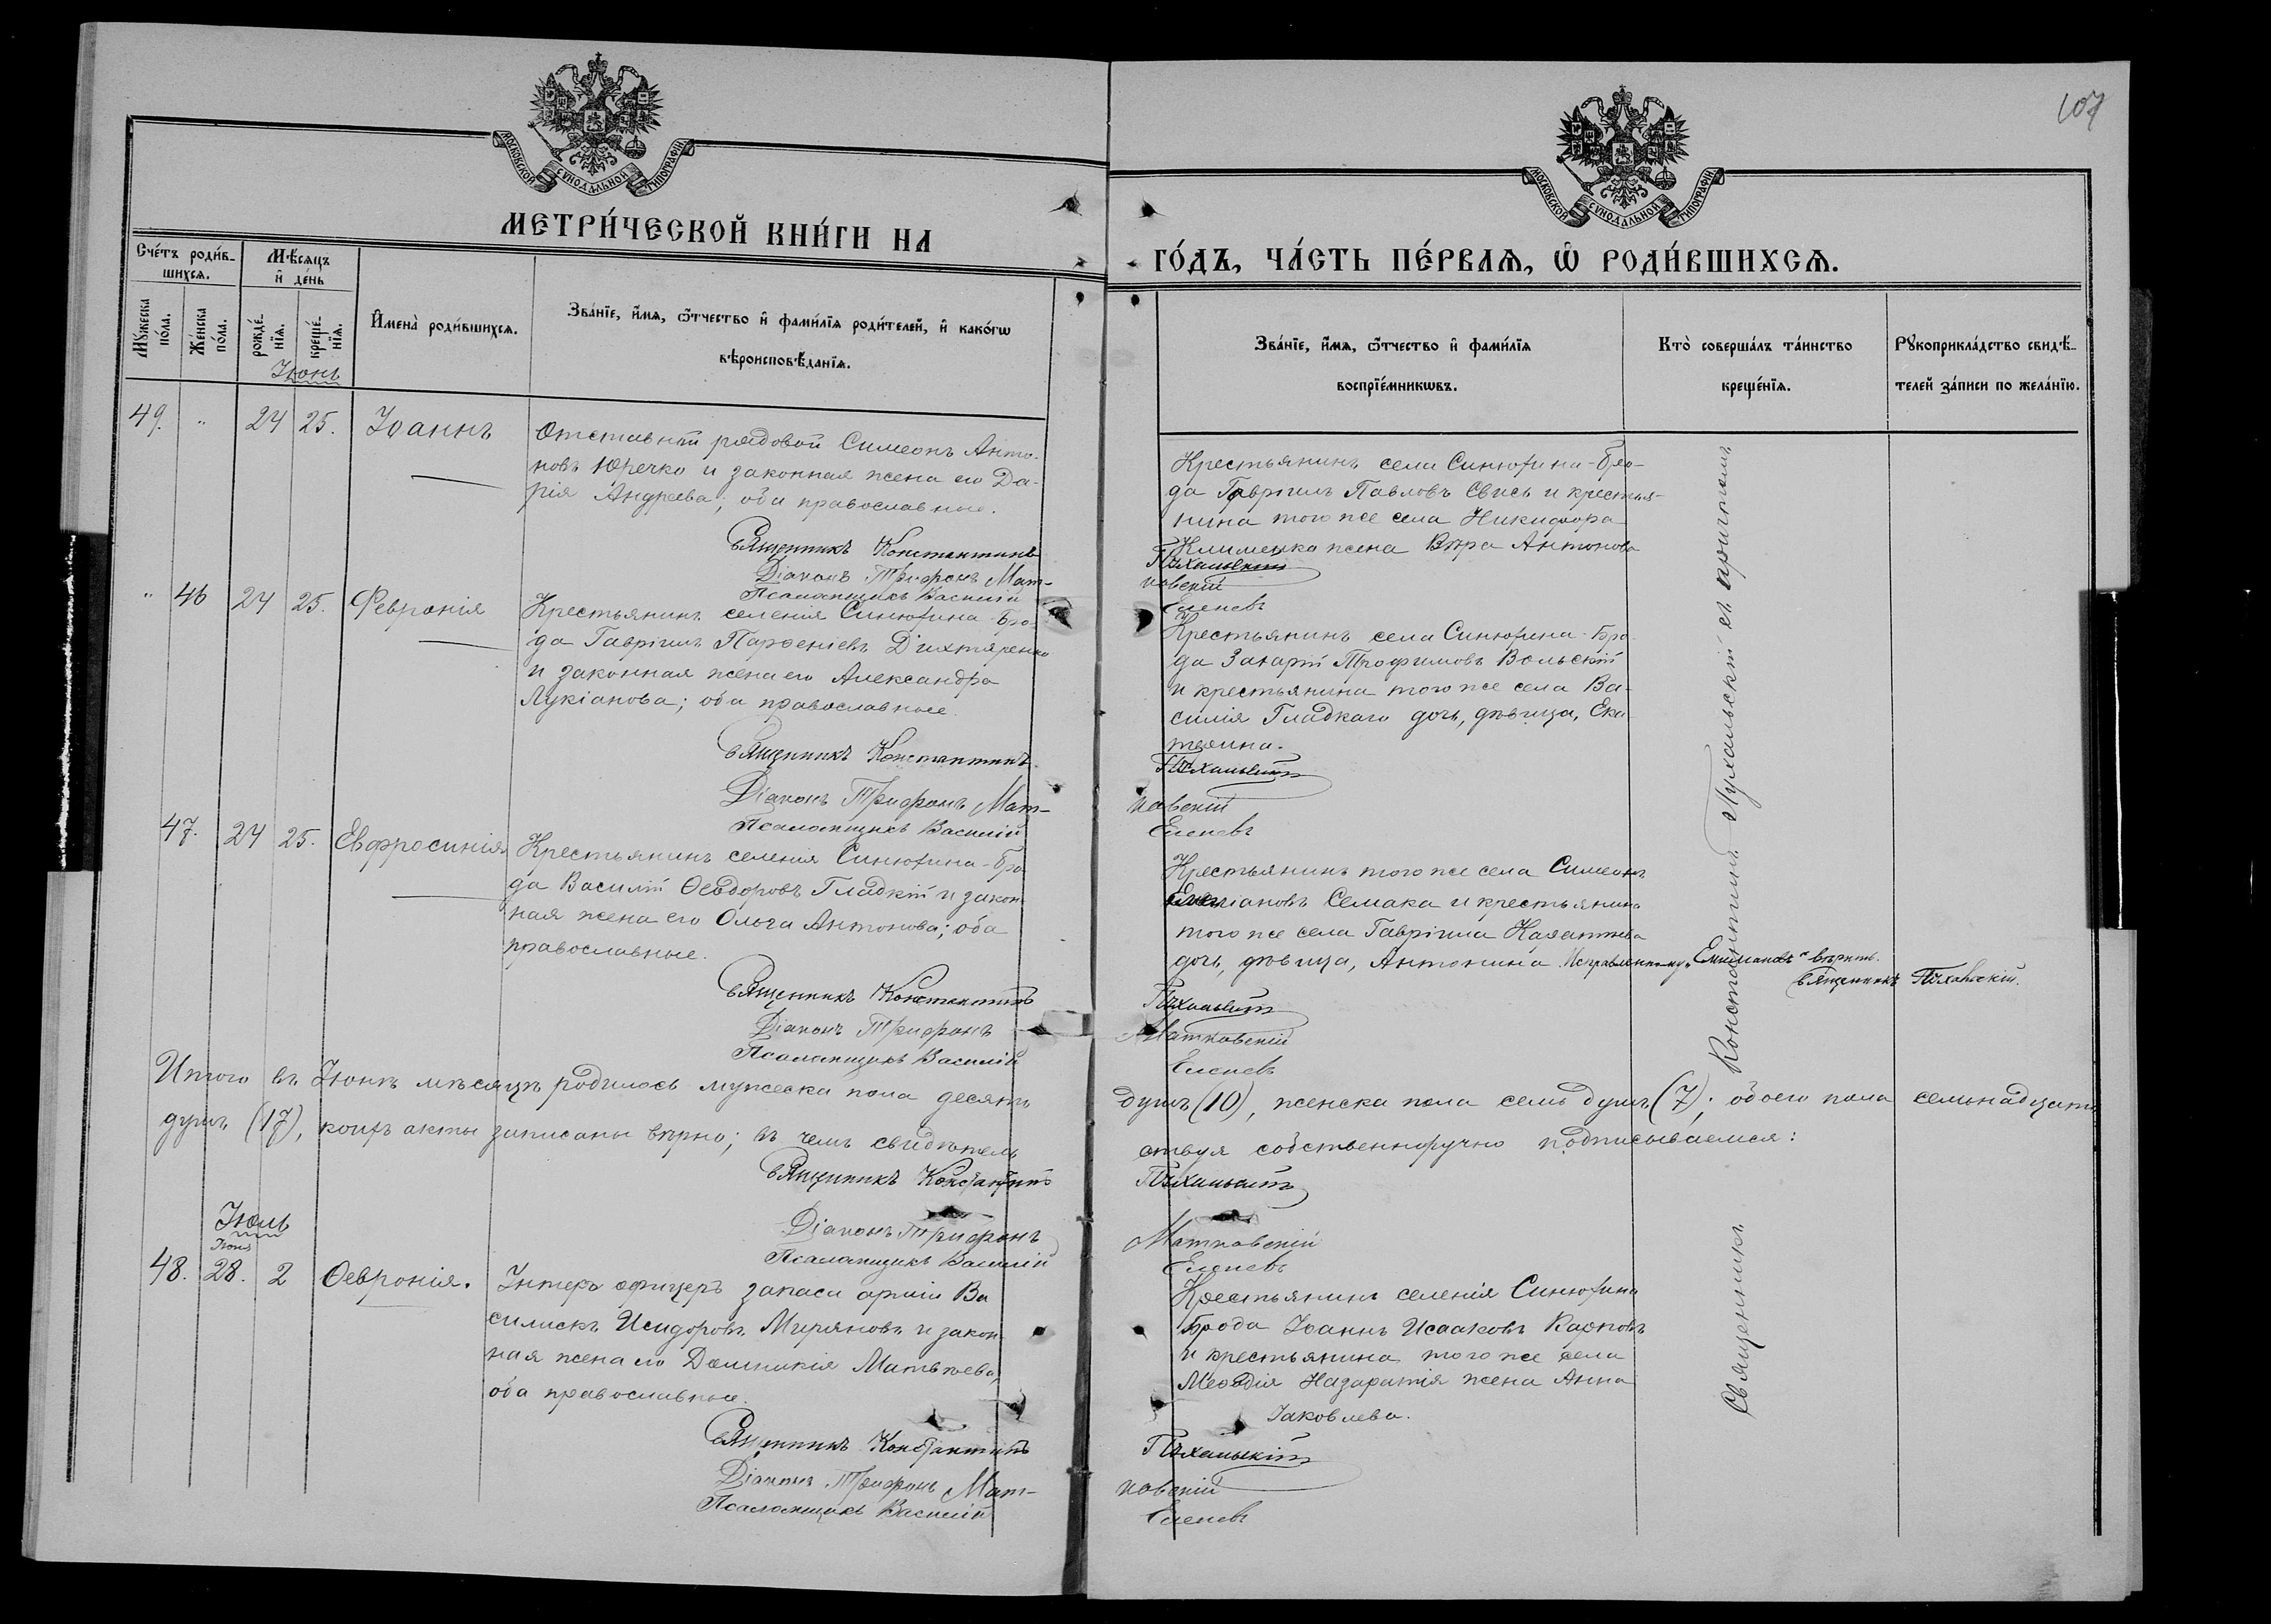 107
МОСКОВСКОЙ СѴНОДАЛЬНОЙ ТИПОГРАФІИ
МОСКОВСКОЙ СѴНОДАЛЬНОЙ ТИПОГРАФІИ
МЕТРИ́ЧЕСКОЙ КНИ́ГИ НА
ГО́ДЪ, ЧА́СТЬ ПЕ́РВАЯ, Ѡ҆ РОДИ́ВШИХСЯ.
Сче́тъ роди́в-
шихся.
Му́жеска по́ла.
Же́нска по́ла.
Мѣ́сяцъ
и҆ де́нь
рожде́-
нїя.
креще́-
нїя.
И҆мена̀ роди́вшихся.
Зва́нїе, и҆́мя, ѻ҆́тчество и҆ фами́лїя роди́телей, и҆ како́гѡ
вѣроисповѣ́данїя.
Зва́нїе, и҆́мя, ѻ҆́тчество и҆ фами́лїя
воспрїе́мникѡвъ.
Кто̀ соверша́лъ та́инство
креще́нїя.
Рꙋкоприкла́дство свидѣ́-
телей за́писи по жела́нїю.
Іюнь
49. " 24 25. Іоаннъ
Отставной рядовой Симеонъ Анто-
новъ Юречко и законная жена его Да-
рія Андреева; оба православные.
Священникъ Константинъ
Діаконъ Трифонъ Мат-
Псаломщикъ Василій
Крестьянинъ села Синюхина-Бро-
да Гавріилъ Павловъ Свись и крестья-
нина того же села Никифора
Клименка жена Вѣра Антонова
Пухальскій
ковскій
Еленевъ
" 46 24 25. Февронія
Крестьянинъ селенія Синюхина-Бро-
да Гавріилъ Парѳеніевъ Дихтяренко
и законная жена его Александра
Лукіанова; оба православные.
Священникъ Константинъ
Діаконъ Трифонъ Мат-
Псаломщикъ Василій
Крестьянинъ села Синюхина-Бро-
да Захарій Трофимовъ Вольскій
и крестьянина того же села Ва-
силія Гладкаго дочь, дѣвица, Ека-
терина.
Пухальскій
ковскій
Еленевъ
47. 24 25. Евфросинія
Крестьянинъ селенія Синюхина-Бро-
да Василій Ѳеодоровъ Гладкій и закон-
ная жена его Ольга Антонова; оба
православные.
Священникъ Константинъ
Діаконъ Трифонъ
Псаломщикъ Василій
Крестьянинъ того же села Симеонъ
Емиліановъ Семака и крестьянина
того же села Гавріила
дочь, дѣвица, Антонина. Исправленному „Емиліановъ" вѣрить.
Священникъ Пухальскій.
Пухальскій
Матковскій
Еленевъ
Итого въ Іюнѣ мѣсяцѣ родилось мужеска пола десять
душъ (10), женска пола семь душъ (7); обоего пола семьнадцать
душъ (17), коихъ акты записаны вѣрно; въ чемъ свидѣтель
ствуя собственноручно подписываемся:
Священникъ Константинъ
Пухальскій
Діаконъ Трифонъ
Матковскій
Псаломщикъ Василій
Еленевъ
Іюль
Іюнь
48. 28. 2 Ѳевронія.
Унтеръ офицеръ запаса арміи Ва
силискъ Исидоровъ Миряновъ и закон-
ная жена его Домникія Матвѣева,
оба православные.
Священникъ Константинъ
Діаконъ Трифонъ Мат-
Псаломщикъ Василій
Крестьянинъ селенія Синюхина
Брода Іоаннъ Исааковъ Карповъ
и крестьянина того же села
Меѳодія Назаратія жена Анна
Іаковлева.
Пухальскій
ковскій
Еленевъ
Священникъ Константинъ Пухальскій съ причтомъ